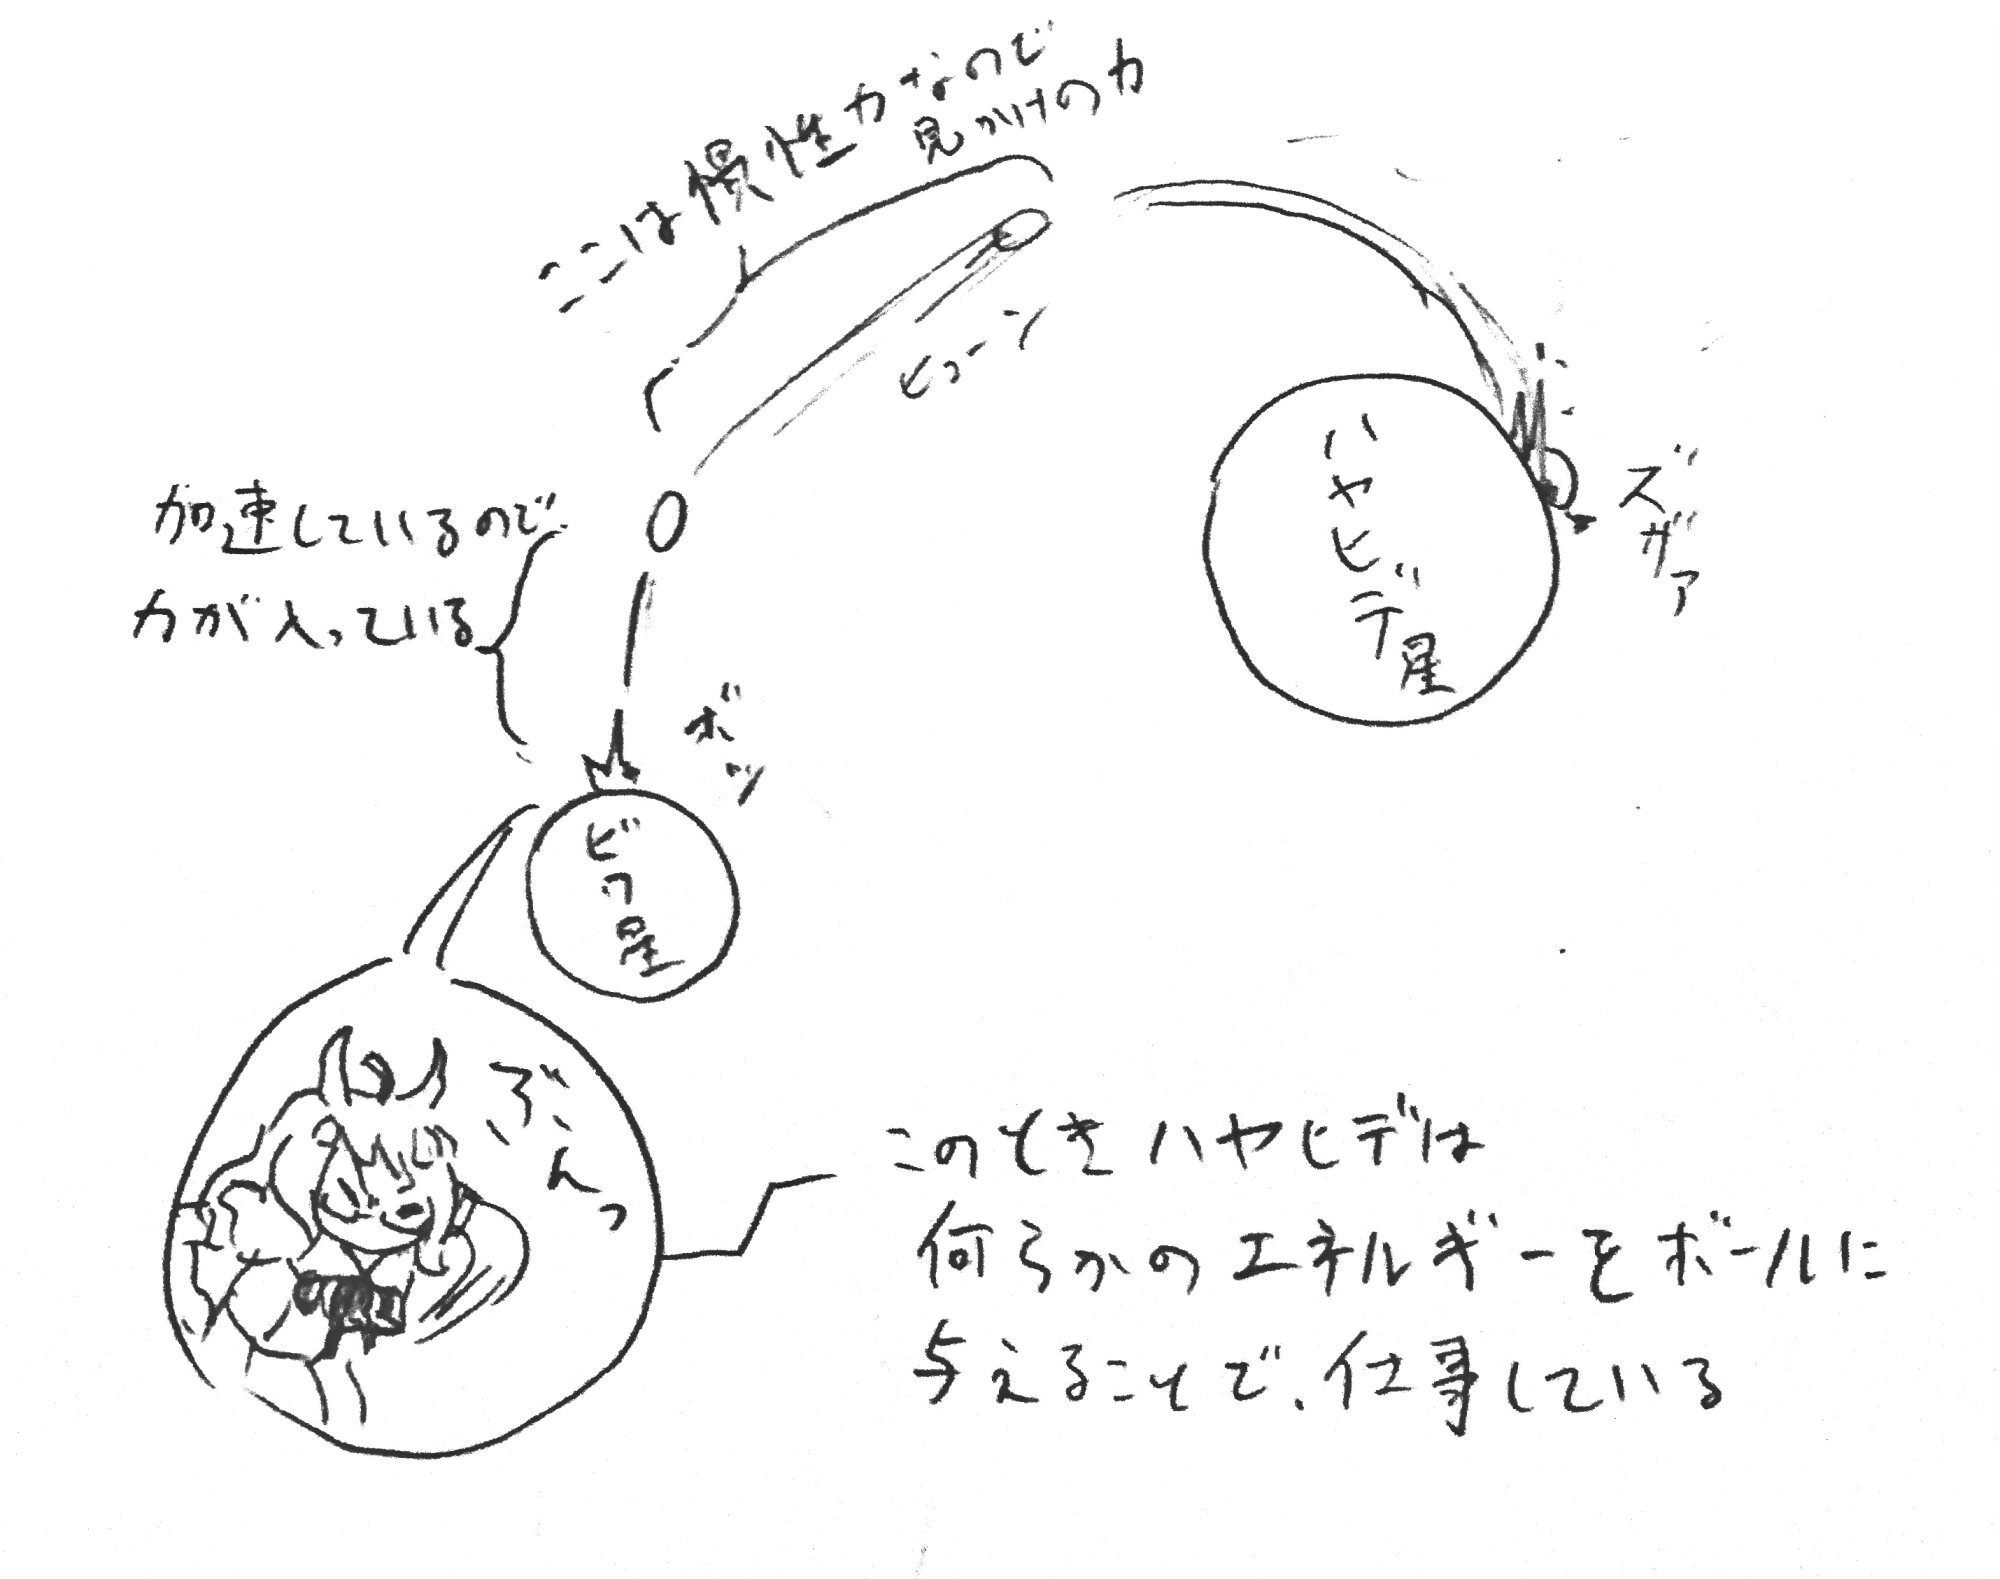 ここは慣性力なので
見かけの力
ビューン
ハヤヒデ星
ズザァ
加速しているので
力が入っている
ボッ
ビワ星
ぶんっ
このときハヤヒデは
何らかのエネルギーをボールに
与えることで、仕事している